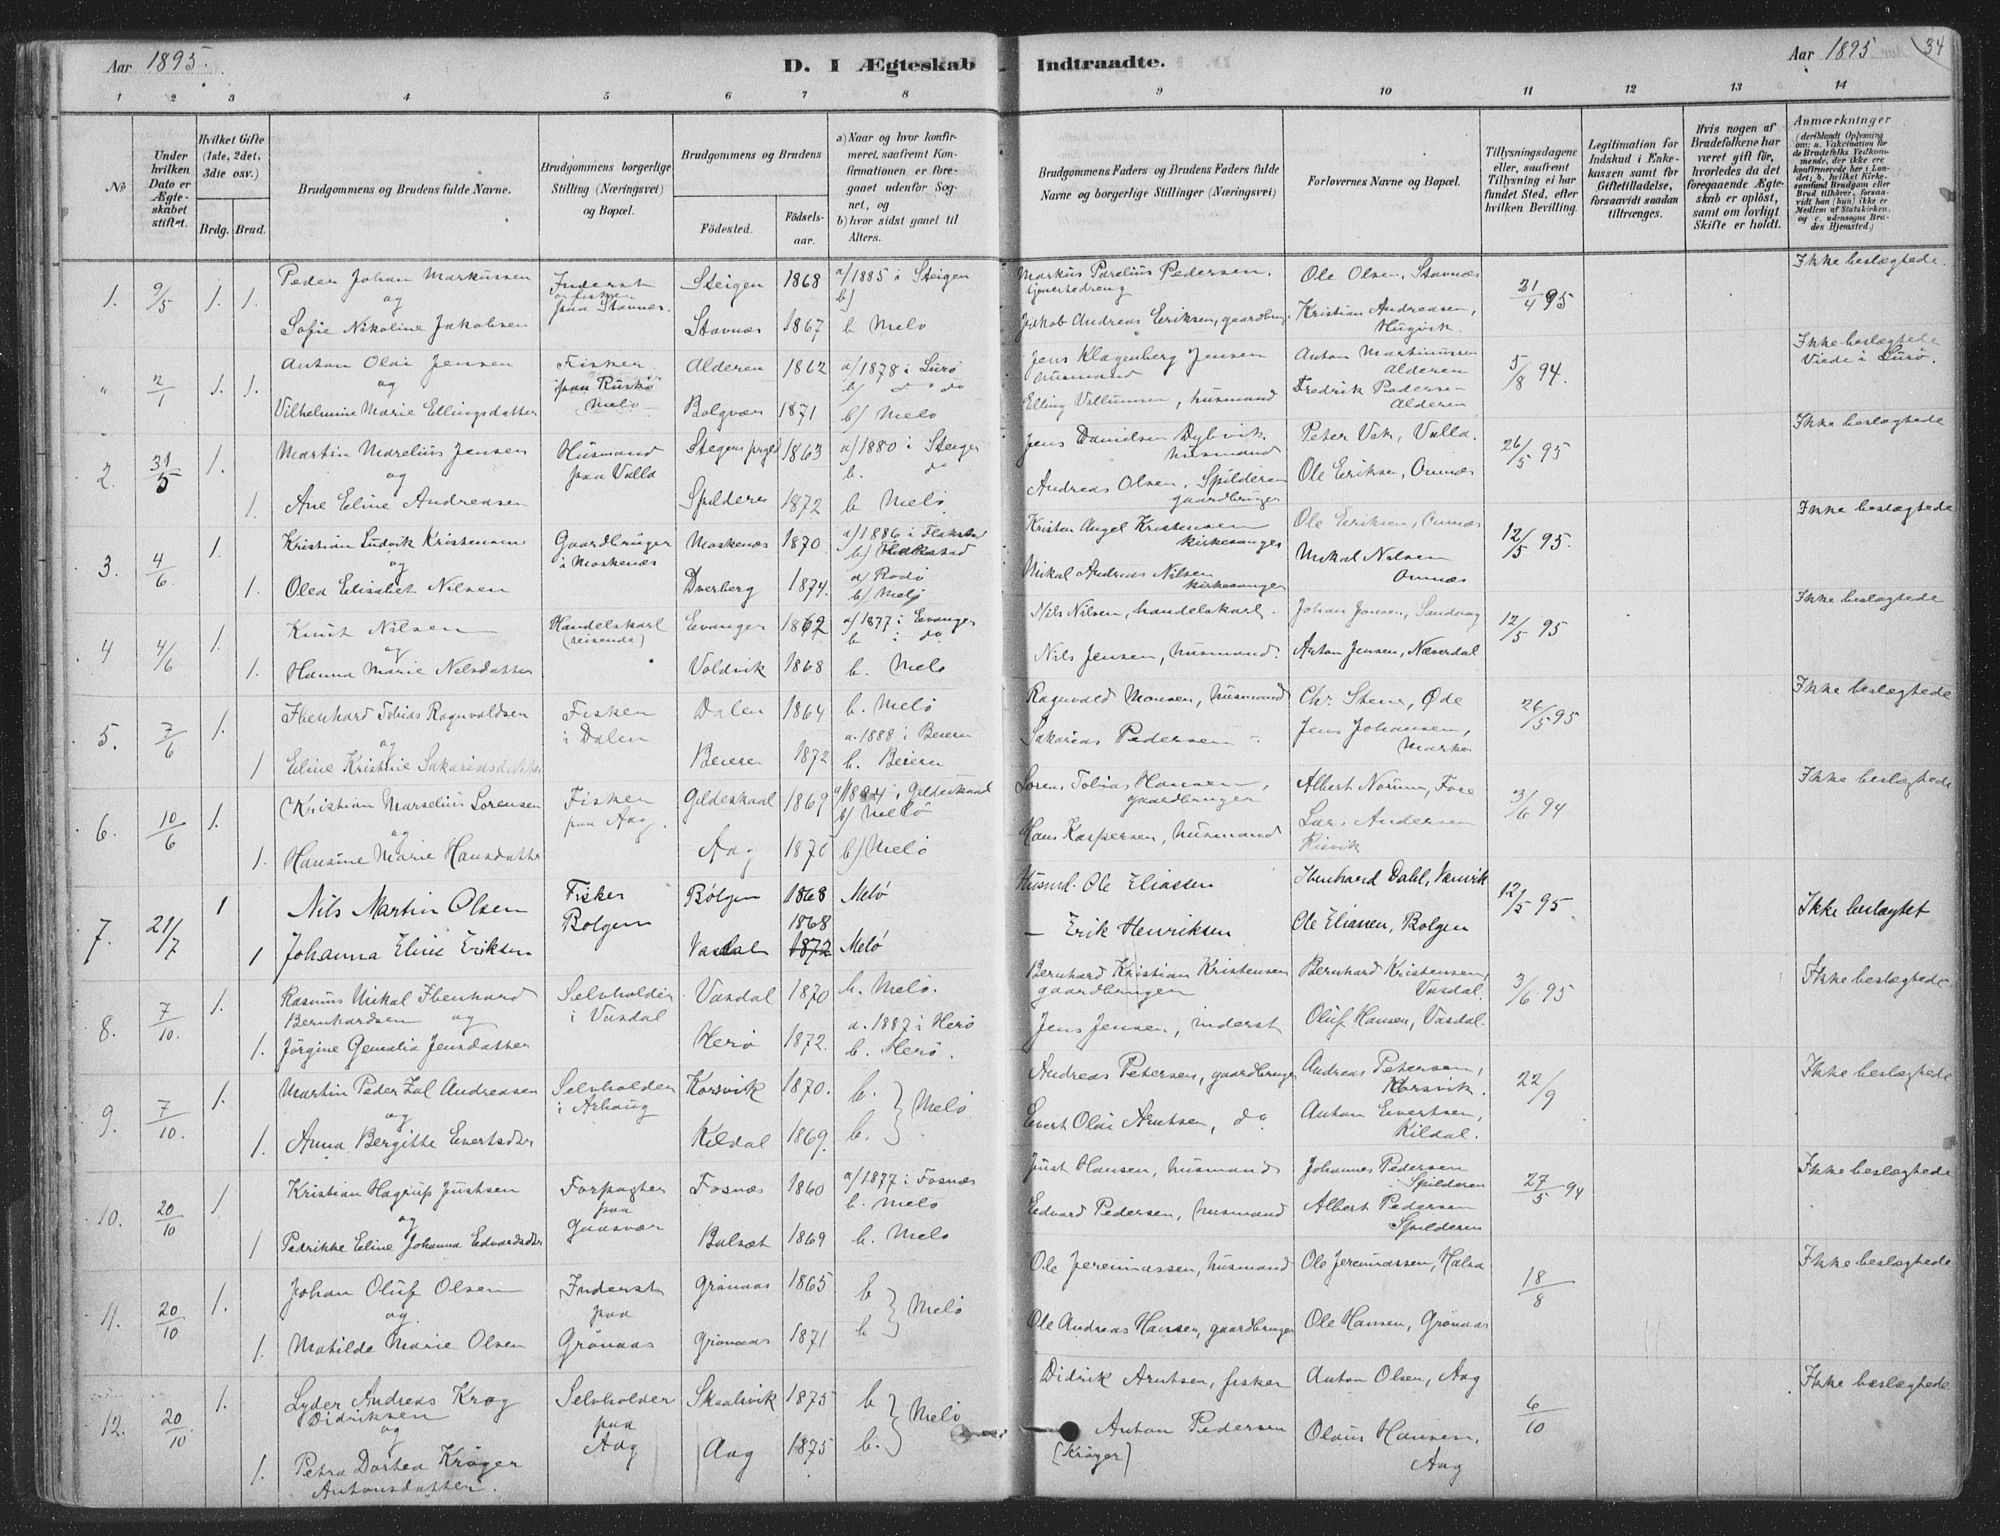 Aar 1895.
D. I Ægteskab Indtraadte.
Aar 1895
34
1 2 3 4 5 6 7 8 9 10 11 12 13 14
No
Under hvilken Dato er Ægteskabet stiftet.
Hvilket Gifte (1ste, 2det, 3die osv.)
Brdg. Brud.
Brudgommens og Brudens fulde Navne.
Brudgommens borgerlige Stilling (Næringsvei) og Bopæl.
Brudgommens og Brudens
Fødested.
Fødselsaar.
a) Naar og hvor konfirmeret, saafremt Konfirmationen er foregaaet udenfor Sognet, og
b) hvor sidst gaaet til Alters.
Brudgommens Faders og Brudens Faders fulde Navne og borgerlige Stillinger (Næringsvei)
Forlovernes Navne og Bopæl.
Tillysningsdagene eller, saafremt Tillysning ei har fundet Sted, efter hvilken Bevilling.
Legitimation for Indskud i Enkekassen samt for Giftetilladelse, forsaavidt saadan tiltrænges.
Hvis nogen af Brudefolkene har været gift før, hvorledes da det foregaaende Ægteskab er opløst, samt om lovligt Skifte er holdt.
Anmærkninger
(deriblandt Oplysning om: a. Vakcination for de Brudefolks Vedkommende, der ikke ere konfirmerede her i Landet; b. hvilket Kirkesamfund Brudgom eller Brud tilhører, forsaavidt han (hun) ikke er Medlem af Statskirken, og c. udensogns Brudes Hjemsted.)
1. 9/5 1. 1. Peder Johan Markussen Inderst Steigen 1868 a/1885 i Steigen Markus Parelius Pedersen, Ole Olsen, Stavnæs 21/4 95 Ikke beslægtede.
og og fisker b)
Sofie Nikoline Jakobsen paa Stavnæs. Stavnæs 1867 b Melø Jakob Andreas Eriksen, gaardbrug. Kristian Andreasen, Hugvik
" 2/1 1. 1. Anton Olai Jensen Fisker Alderen 1862 a/1878 i Lurø Jens Klagenberg Jensen husmand Anton Martinussen Alderen 5/8 94. Ikke beslægtede Viede i Lurø.
og paa Rusker Melø b) do
Vilhelmine Marie Ellingsdatter Bolgvær 1871 b) Melø Elling Villumsen, husmand Fredrik Pedersen Alderen
2. 31/5 1. Martin Marelius Jensen Husmand Stegens prgld 1863 a/1880 i Steigen Jens Danielsen Dybvik, husmand Peter Vik, Valla. 26/5 95 Ikke beslægtede
og paa Valla b. do
1. Ane Eline Andreasen Spilderen 1872 b Melø Andreas Olsen, Spilderen gaardbruger Ole Eriksen, Ornæs
3. 4/6 1. Kristian Ludvik Kristensen Gaardbruger Moskenæs 1870 a/1886 i Flakstad Kristen Angel Kristensen kirkesanger Ole Eriksen, Ornæs 12/5 95. Ikke beslægtede
og i Moskenæs b) Flakstad
1. Olea Elisabet Nilsen Dverberg 1874. a/ Rødø b/ Melø Mikal Andreas Nilsen kirkesanger Mikal Nilsen Ornæs
4 4/6 1. Knut Nilsen Handelskarl Evanger 1862 a/1877 i Evanger Nils Nilsen, handelskarl. Johan Jensen, Sandvaag 12/5 95 Ikke beslægtede
og (reisende) b i do
1. Hanna Marie Nilsdatter Valdvik 1868 b. Melø Nils Jensen, husmand. Anton Jensen, Næverdal
5. 7/6 1. Ibenhard Tobias Ragnvaldsen Fisker Dalen 1864 b. Melø Ragnvald Monsen, husmand Chr. Stene, Øde 26/5 95 Ikke beslægtede
og i Dalen a. 1888 i Beieren
1 Eline Kristine Sakariasdatter Beieren 1872 b. Beieren Sakarias Pedersen - Jens Johansen,
6. 10/6 1. Kristian Marselius Sørensen Fisker Gildeskaal 1869 a/1884 i Gildeskaal Søren Tobias Hansen, gaardbruger Albert Norum, Fore 3/6 94 Ikke beslægtede
og paa Aag. b) Melø
1. Hansine Marie Hansdatter Aag 1870 b) Melø Hans Kaspersen, husmand Lars Andersen Risvik
7. 21/7 1 Nils Martin Olsen Fisker Bolgen 1868 Melø Husmd. Ole Eliassen Ibenhard Dahl, Vanvik 12/5 95 Ikke beslægtet
Bolgen 1868
1 Johanna Eline Eriksen Vasdal 1872 Melø — Erik Henriksen Ole Eliassen, Bolgen
8. 7/10. 1. Rasmus Mikal Ibenhard Selvholder Vasdal 1870 b. Melø. Bernhard Kristian Kristensen gaardbruger Bernhard Kristensen, Vasdal. 3/6 95 Ikke beslægtede
Bernhardsen og i Vasdal a. 1887 i Herø
1. Jørgine Gemalia Jensdatter Herø 1872. b. Herø. Jens Jensen, inderst Oluf Hansen, Vasdal.
9. 7/10. 1. Martin Peder Zal Andreasen Selvholder Korsvik 1870. b. Melø Andreas Petersen, gaardbruger Andreas Petersen, Korsvik. 22/9 Ikke beslægtede
og i Arhaug
1. Anna Bergitte Evertsdtr Kildal 1869. b. Evert Olai Arntsen, do. Anton Evertsen, Kildal.
10. 20/10 1 Kristian Hagrup Justsen Forpagter Fosnæs 1860 a/1877 i Fosnæs Just Hansen, husmand Johannes Pedersen Spilderen 27/5 94 Ikke beslægtede
og paa Gaasvær b. Melø
1 Pedrikke Eline Johanna Edvardsdtr Bolsæt 1869 b. Melø Edvard Pedersen, husmand Albert Pedersen Spilderen
11. 20/10 1. Johan Oluf Olsen Inderst Grønaas 1865 b Melø Ole Jeremiassen, husmand Ole Jeremiassen, Halsa 18/8 Ikke beslægtede
og paa
1. Matilde Marie Olsen Grønaas Grønaas 1871 b. Ole Andreas Hansen, gaardbruger Ole Hansen, Grønaas
12. 20/10 1. Lyder Andreas Krog Selvholder Skaalsvik 1875 b Melø Didrik Arntsen, fisker Anton Olsen, Aag 6/10 Ikke beslægtede
Didriksen og paa Aag
1. Petra Dortea Krøger Aag 1875 b. Anton Pedersen Olaus Hansen,
Antonsdatter. [Krøger] Aag